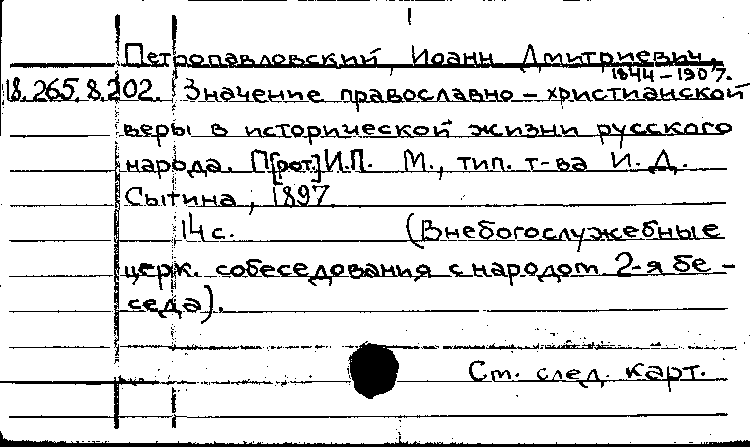 Петропавловский, Иоанн Дмитриевич,
1844-1907.
18.265.8.202. Значение православно-христианской
веры в исторической жизни русского
народа. П[рот.] И.П. М., тип. т-ва И.Д.
Сытина, 1897.
14 с. (Внебогослужебные
церк. собеседования с народом 2-я бе-
седа).
См. след. карт.